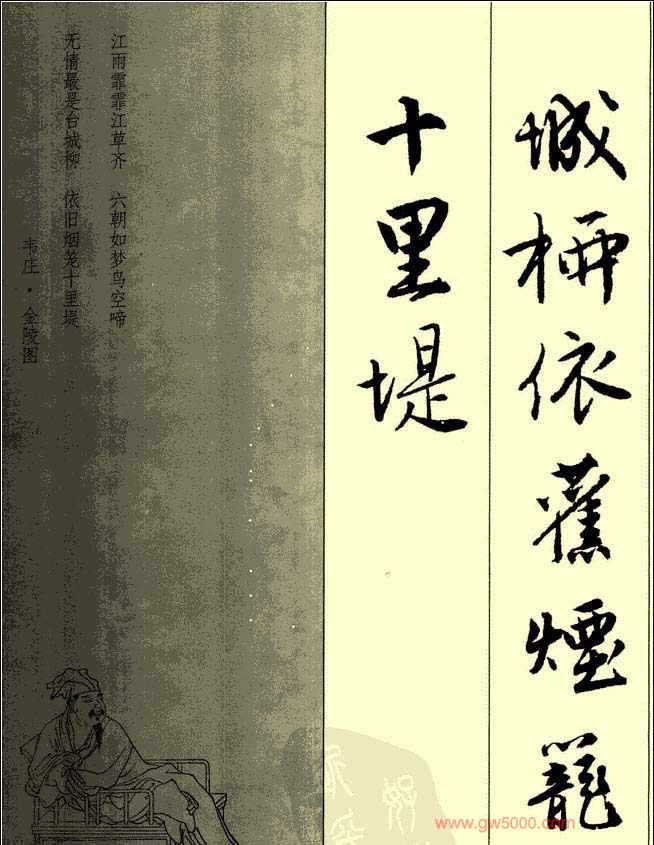 城柳依舊煙籠
十里堤
江雨霏霏江草齐 六朝如梦鸟空啼
无情最是台城柳 依旧烟笼十里堤
韦庄·金陵图
www.gw5000.com